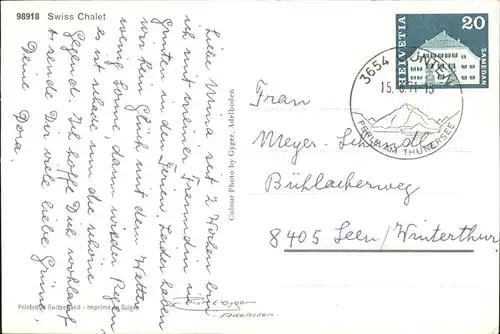 98918 Swiss Chalet
Liebe Mina, seit 2 Wochen bin
ich mit meiner Freundin in
Gunten in den Ferien. Leider haben
wir kein Glück mit dem Wetter
wenig Sonne, dann wieder Regen,
es ist schade um die schöne
Gegend. Ich hoffe Dich wohlauf
& sende Dir viele liebe Grüsse,
Deine Dora.
Colour Photo by Gyger, Adelboden
Printed in Switzerland - Imprimé en Suisse
Gyger
Adelboden.
HELVETIA
20
SAMEDAN
3654 GUNTEN
15.-6.71-15
PERLE AM THUNERSEE
Frau
Meyer-
Bühlackerweg
8405 Seen/Winterthur